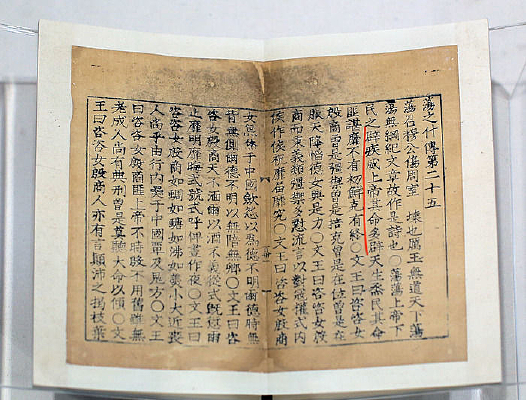 蕩之什傳第二十五
蕩召穆公傷周室 壞也厲王無道天下蕩
蕩無綱紀文章故作是詩也〇蕩蕩上帝下
民之辟疾威上帝其命多辟天生烝民其命
匪諶靡不有初鮮克有終〇文王曰咨咨女
殷商曾是彊禦曾是掊克曾是在位曾是在
服天降慆德女興是力〇文王曰咨咨女殷
商而秉義類彊禦多懟流言以對寇攘式内
侯作侯祝靡屆靡究〇文王曰咨咨女殷商
女炰烋于中國斂怨以爲德不明爾德時無
背無側爾德不明以無陪無卿〇文王曰咨
咨女殷商天不湎爾以酒不義從式既愆爾
止靡明靡晦式號式呼俾晝作夜〇文王曰
咨咨女殷商如蜩如螗如沸如羹小大近喪
人尚乎由行内奰于中國覃及鬼方〇文王
曰咨咨女殷商匪上帝不時殷不用舊雖無
老成人尚有典刑曾是莫聽大命以傾〇文
王曰咨咨女殷商人亦有言顛沛之揭枝葉